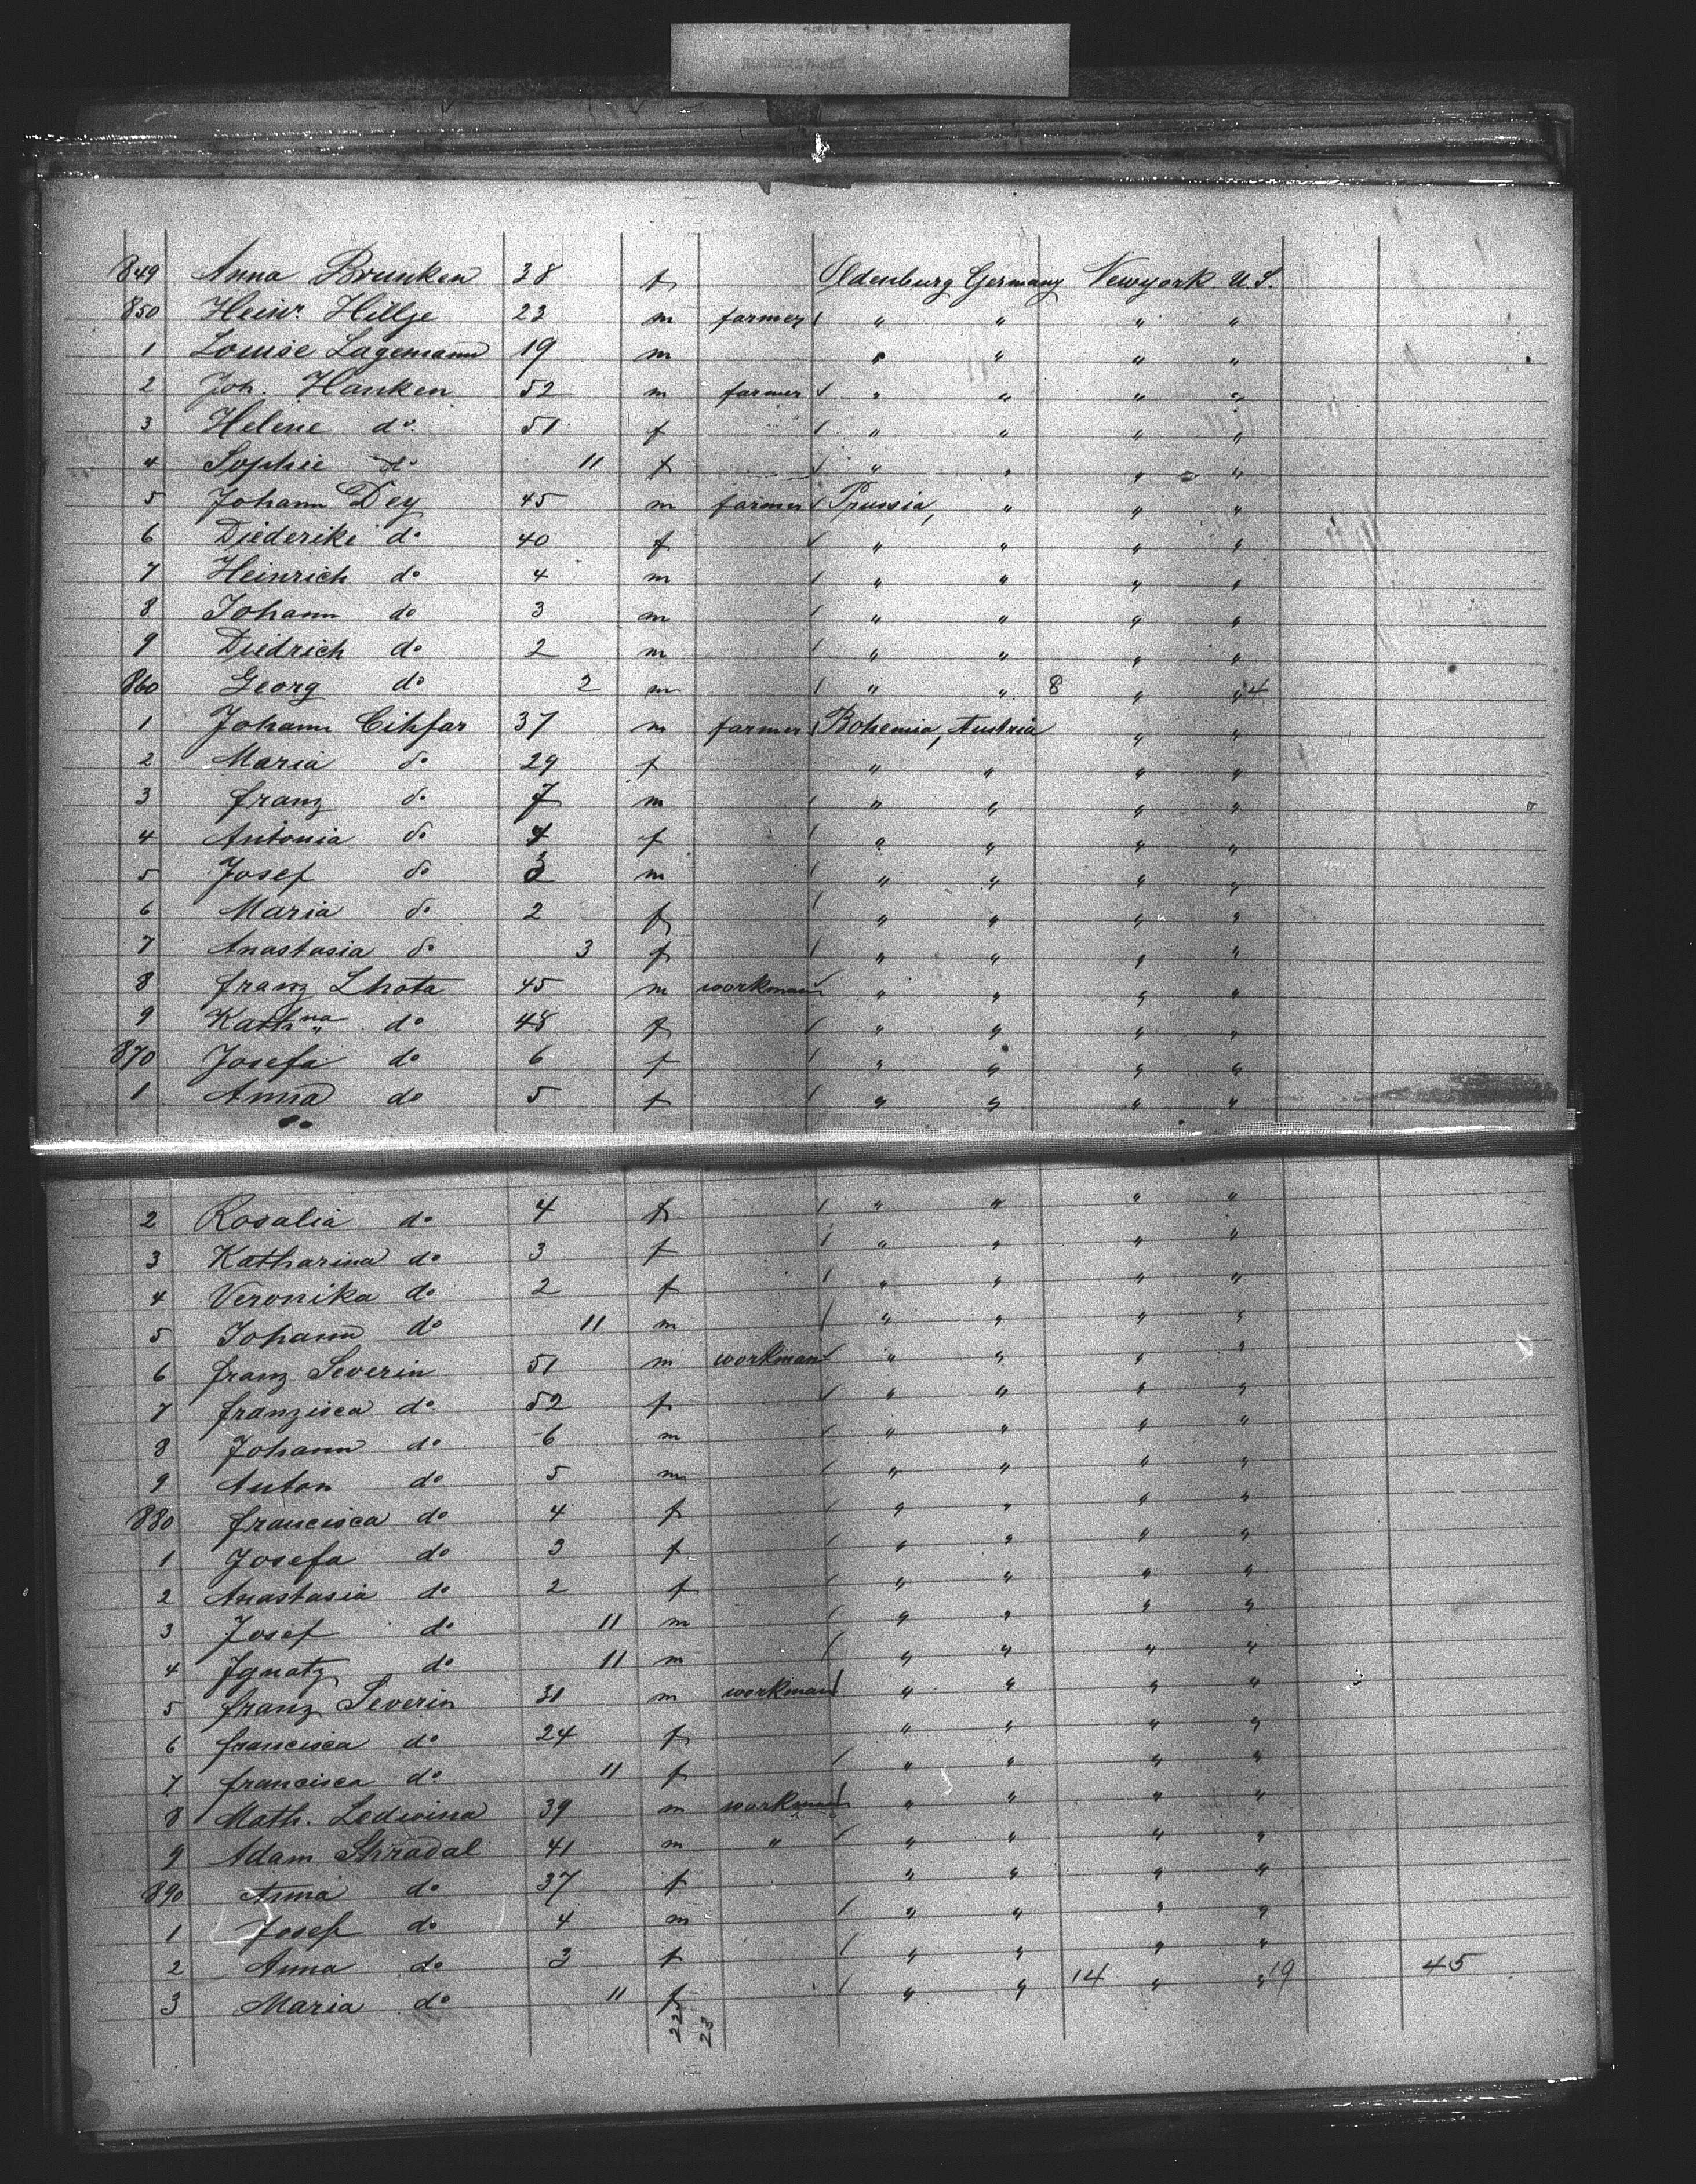 849 Anna Brunken 38 f Oldenburg Germany Newyork U.S.
850 Heinr. Hillje 23 m farmer " " " "
1 Louise Lagemann 19 m " " " "
2 Joh. Hanken 52 m farmer " " " "
3 Helene do 51 f " " " "
4 Sophie do 11 f " " " "
5 Johann Dey 45 m farmer Prussia, " " "
6 Diederike do 40 f " " " "
7 Heinrich do 4 m " " " "
8 Johann do 3 m " " " "
9 Diedrich do 2 m " " " "
860 Georg do 2 m " " 8 " " 4
1 Johann Cihfar 37 m farmer Bohemia, Austria " "
2 Maria do 29 f " " " "
3 Franz do 7 m " " " "
4 Antonia do 4 f " " " "
5 Josef do 3 m " " " "
6 Maria do 2 f " " " "
7 Anastasia do 3 f " " " "
8 Franz Lhota 45 m workman " " " "
9 Kathna do 48 f " " " "
870 Josefa do 6 f " " " "
1 Anna do 5 f " " " "
2 Rosalia do 4 f " " " "
3 Katharina do 3 f " " " "
4 Veronika do 2 f " " " "
5 Johann do 11 m " " " "
6 Franz Severin 51 m workman " " " "
7 Franzisca do 52 f " " " "
8 Johann do 6 m " " " "
9 Anton do 5 m " " " "
880 Francisca do 4 f " " " "
1 Josefa do 3 f " " " "
2 Anastasia do 2 f " " " "
3 Josef do 11 m " " " "
4 Ignatz do 11 m " " " "
5 Franz Severin 31 m workman " " " "
6 Francisca do 24 f " " " "
7 Francisca do 11 f " " " "
8 Math. Ledwina 39 m workman " " " "
9 Adam Shradal 41 m " " " " "
890 Anna do 37 f " " " "
1 Josef do 4 m " " " "
2 Anna do 3 f " " " "
3 Maria do 11 f " " 14 " " 19 45
22
23